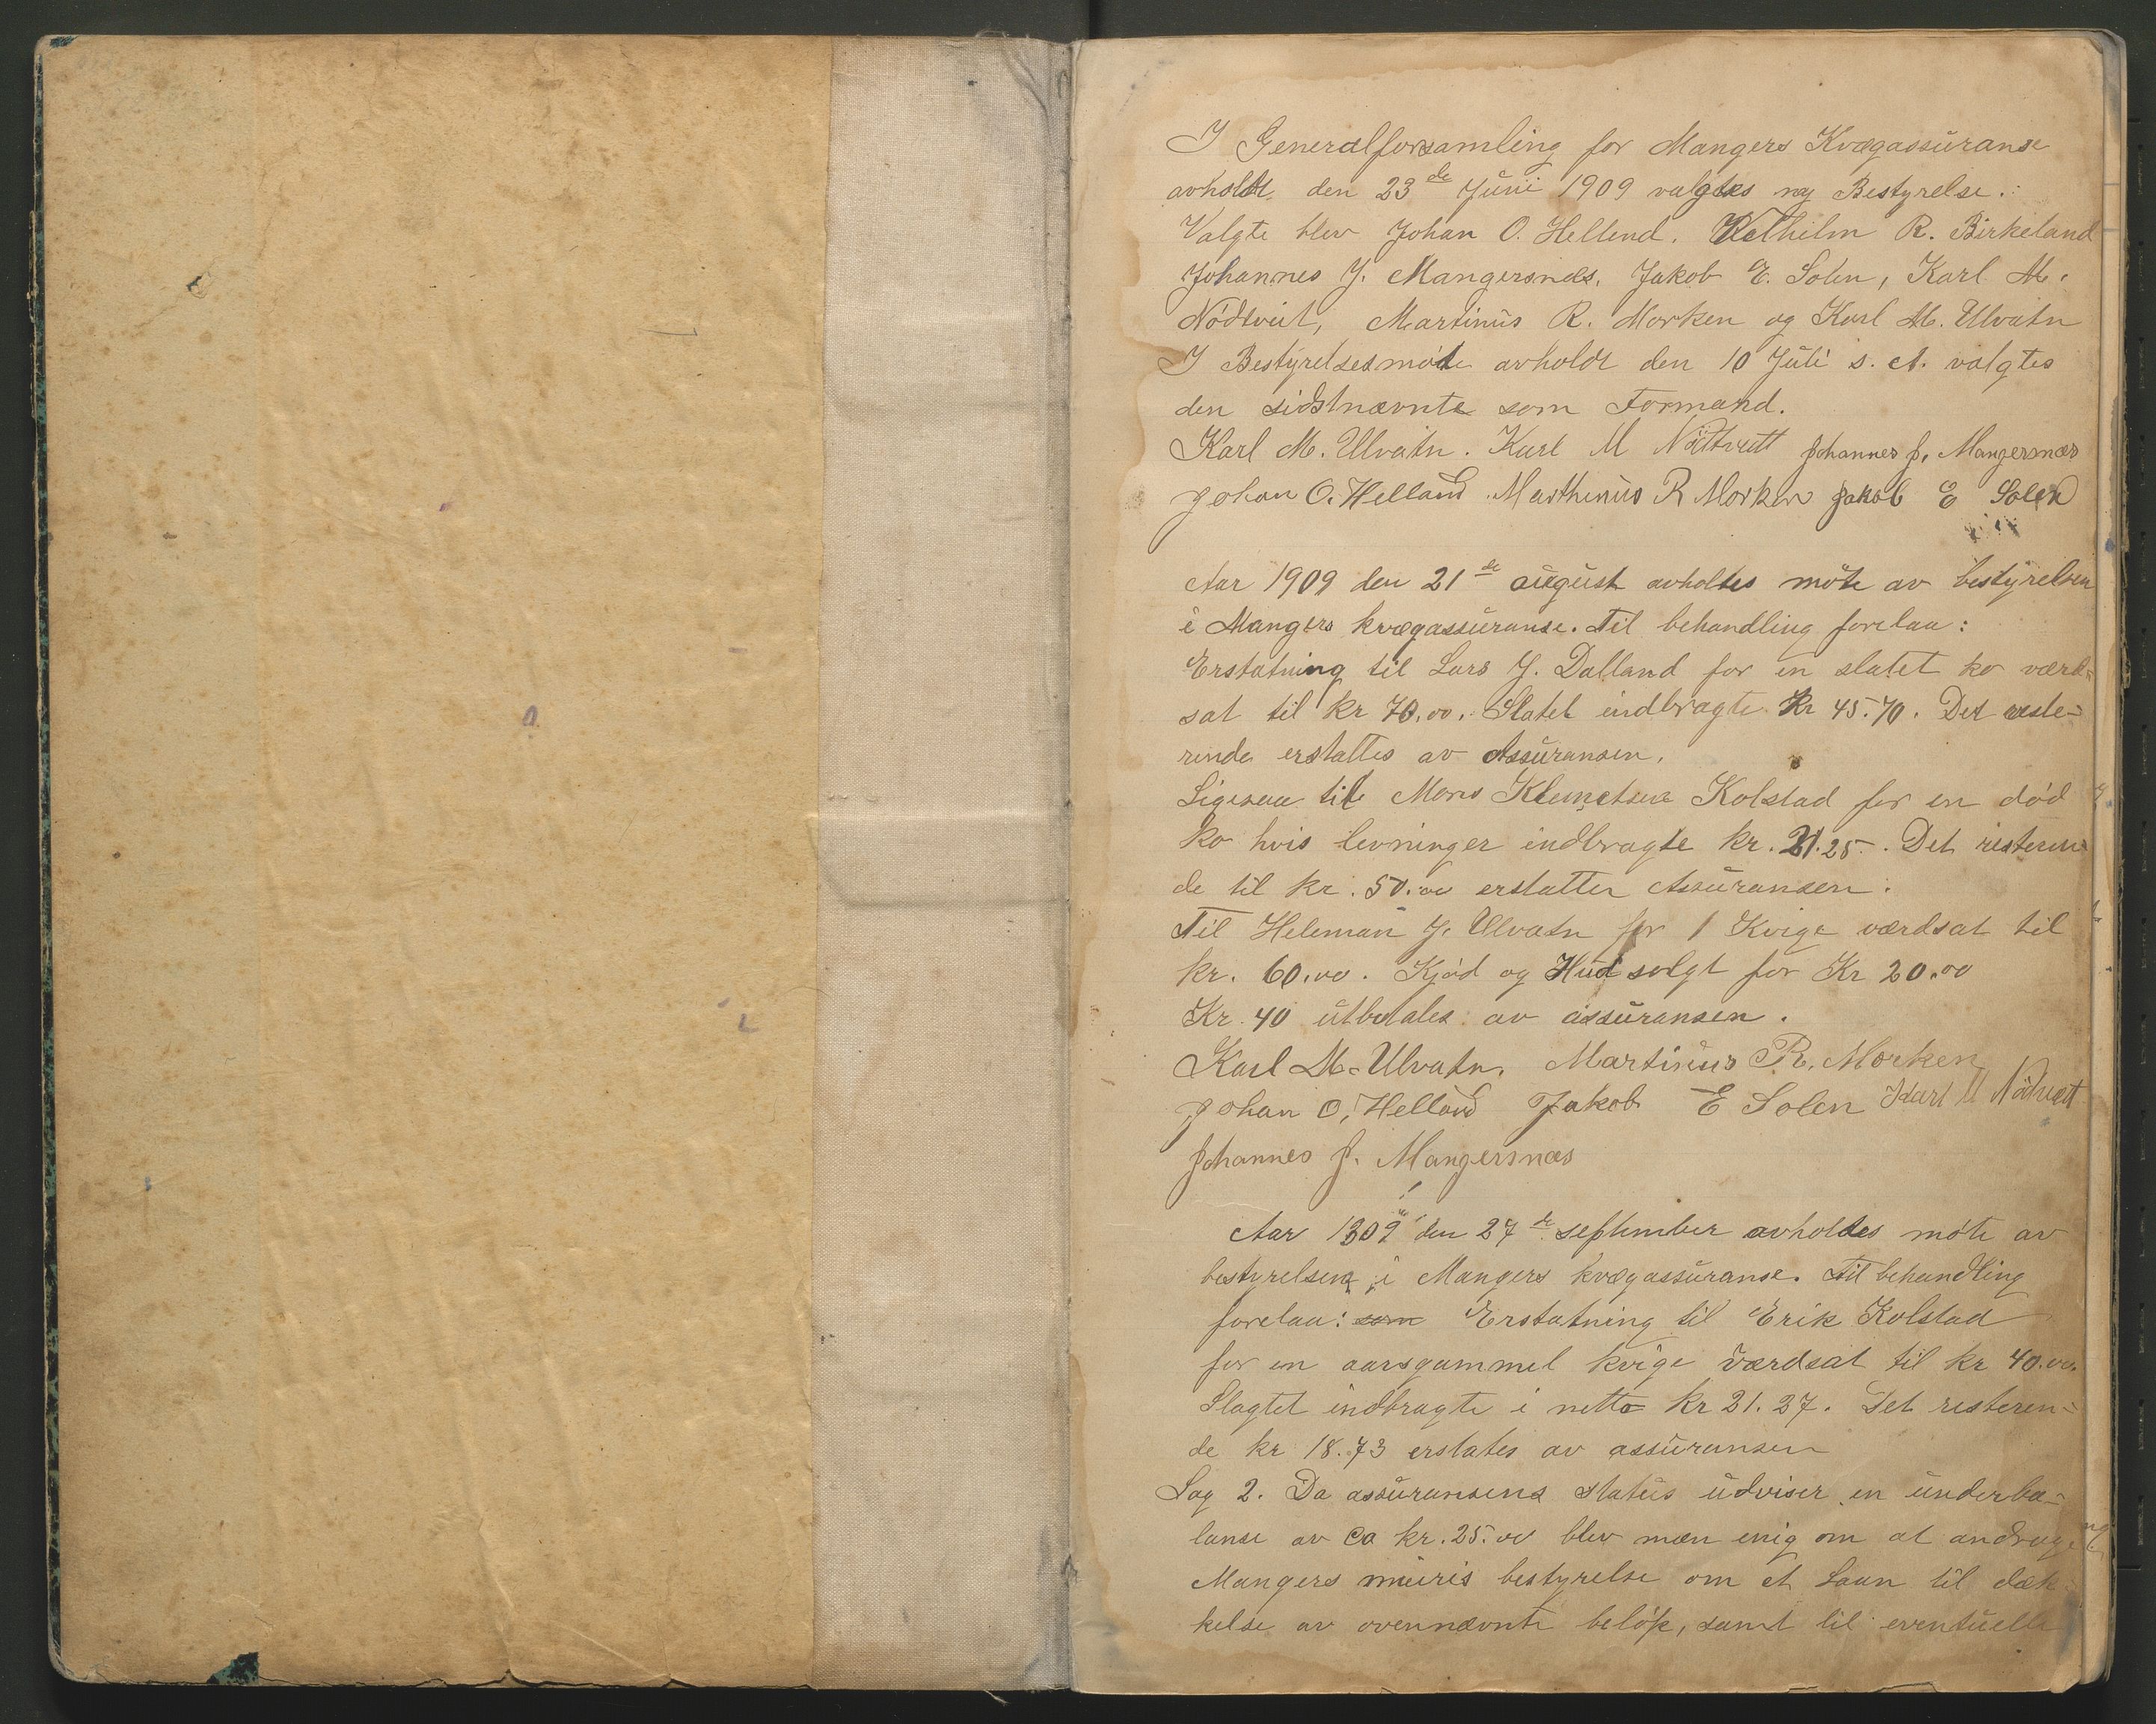 I Generalforsamling for Mangers Kvægassuranse
avholdt den 23de Juni 1909 valgtes ny Bestyrelse.
Valgte blev Johan O. Hellend. Velhelm R. Birkeland
Johannes J. Mangersnæs. Jakob E. Solen, Karl M.
Nödtveit, Martinus R. Morken og Karl M. Ulvatn
I Bestyrelsesmöte avholdt den 10 Juli s. A. valgtes
den sidstnævnte som Formand.
Karl M. Ulvatn. Karl M Nödtvett Johannes J. Mangersnæs
Johan O. Helland. Marthinus R Morken Jakob E Solen
Aar 1909 den 21de august avholtes möte av bestyrelsen
i Mangers kvægassuranse. Til behandling forelaa:
Erstatning til Lars J. Dalland for en slatet ko værd-
sat til kr 70.00. Slatet indbragte Kr 45.70. Det reste-
rende erstattes av Assuransen.
Ligesaa til Mons Klemetsen Kolstad for en död
ko hvis levninger indbragte kr. 21.25. Det resteren
de til kr. 50.00 erstatter Assuransen.
Til Heleman J. Ulvatn for 1 Kvige værdsat til
kr. 60.00. Kjöd og Hud solgt for Kr 20.00
Kr. 40 utbetales av assuransen.
Karl M. Ulvatn. Martinus R. Morken
Johan O, Helland Jakob E Solen Karl M Nödtvett
Johannes J. Mangersnæs
Aar 1909 den 27de september avholdes möte av
bestyrelsen i Mangers kvægassuranse. Til behandling
forelaa: som Erstatning til Erik Kolstad
for en aarsgammel kvige værdsat til kr 40.00.
Slagtet indbragte i netto kr 21.27. Det resteren-
de kr 18.73 erstates av assuransen
Sag 2. Da assuransens status udviser en underba-
lanse av ca kr. 25.00 blev man enig om at andrage
Mangers meieris bestyrelse om et Laan til dæk
kelse av ovennævnte belöp, samt til eventuelle